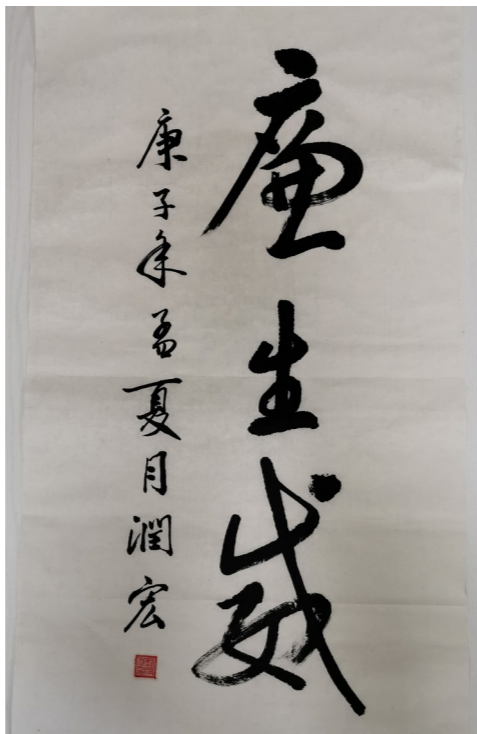 廉生威
庚子年孟夏月润宏